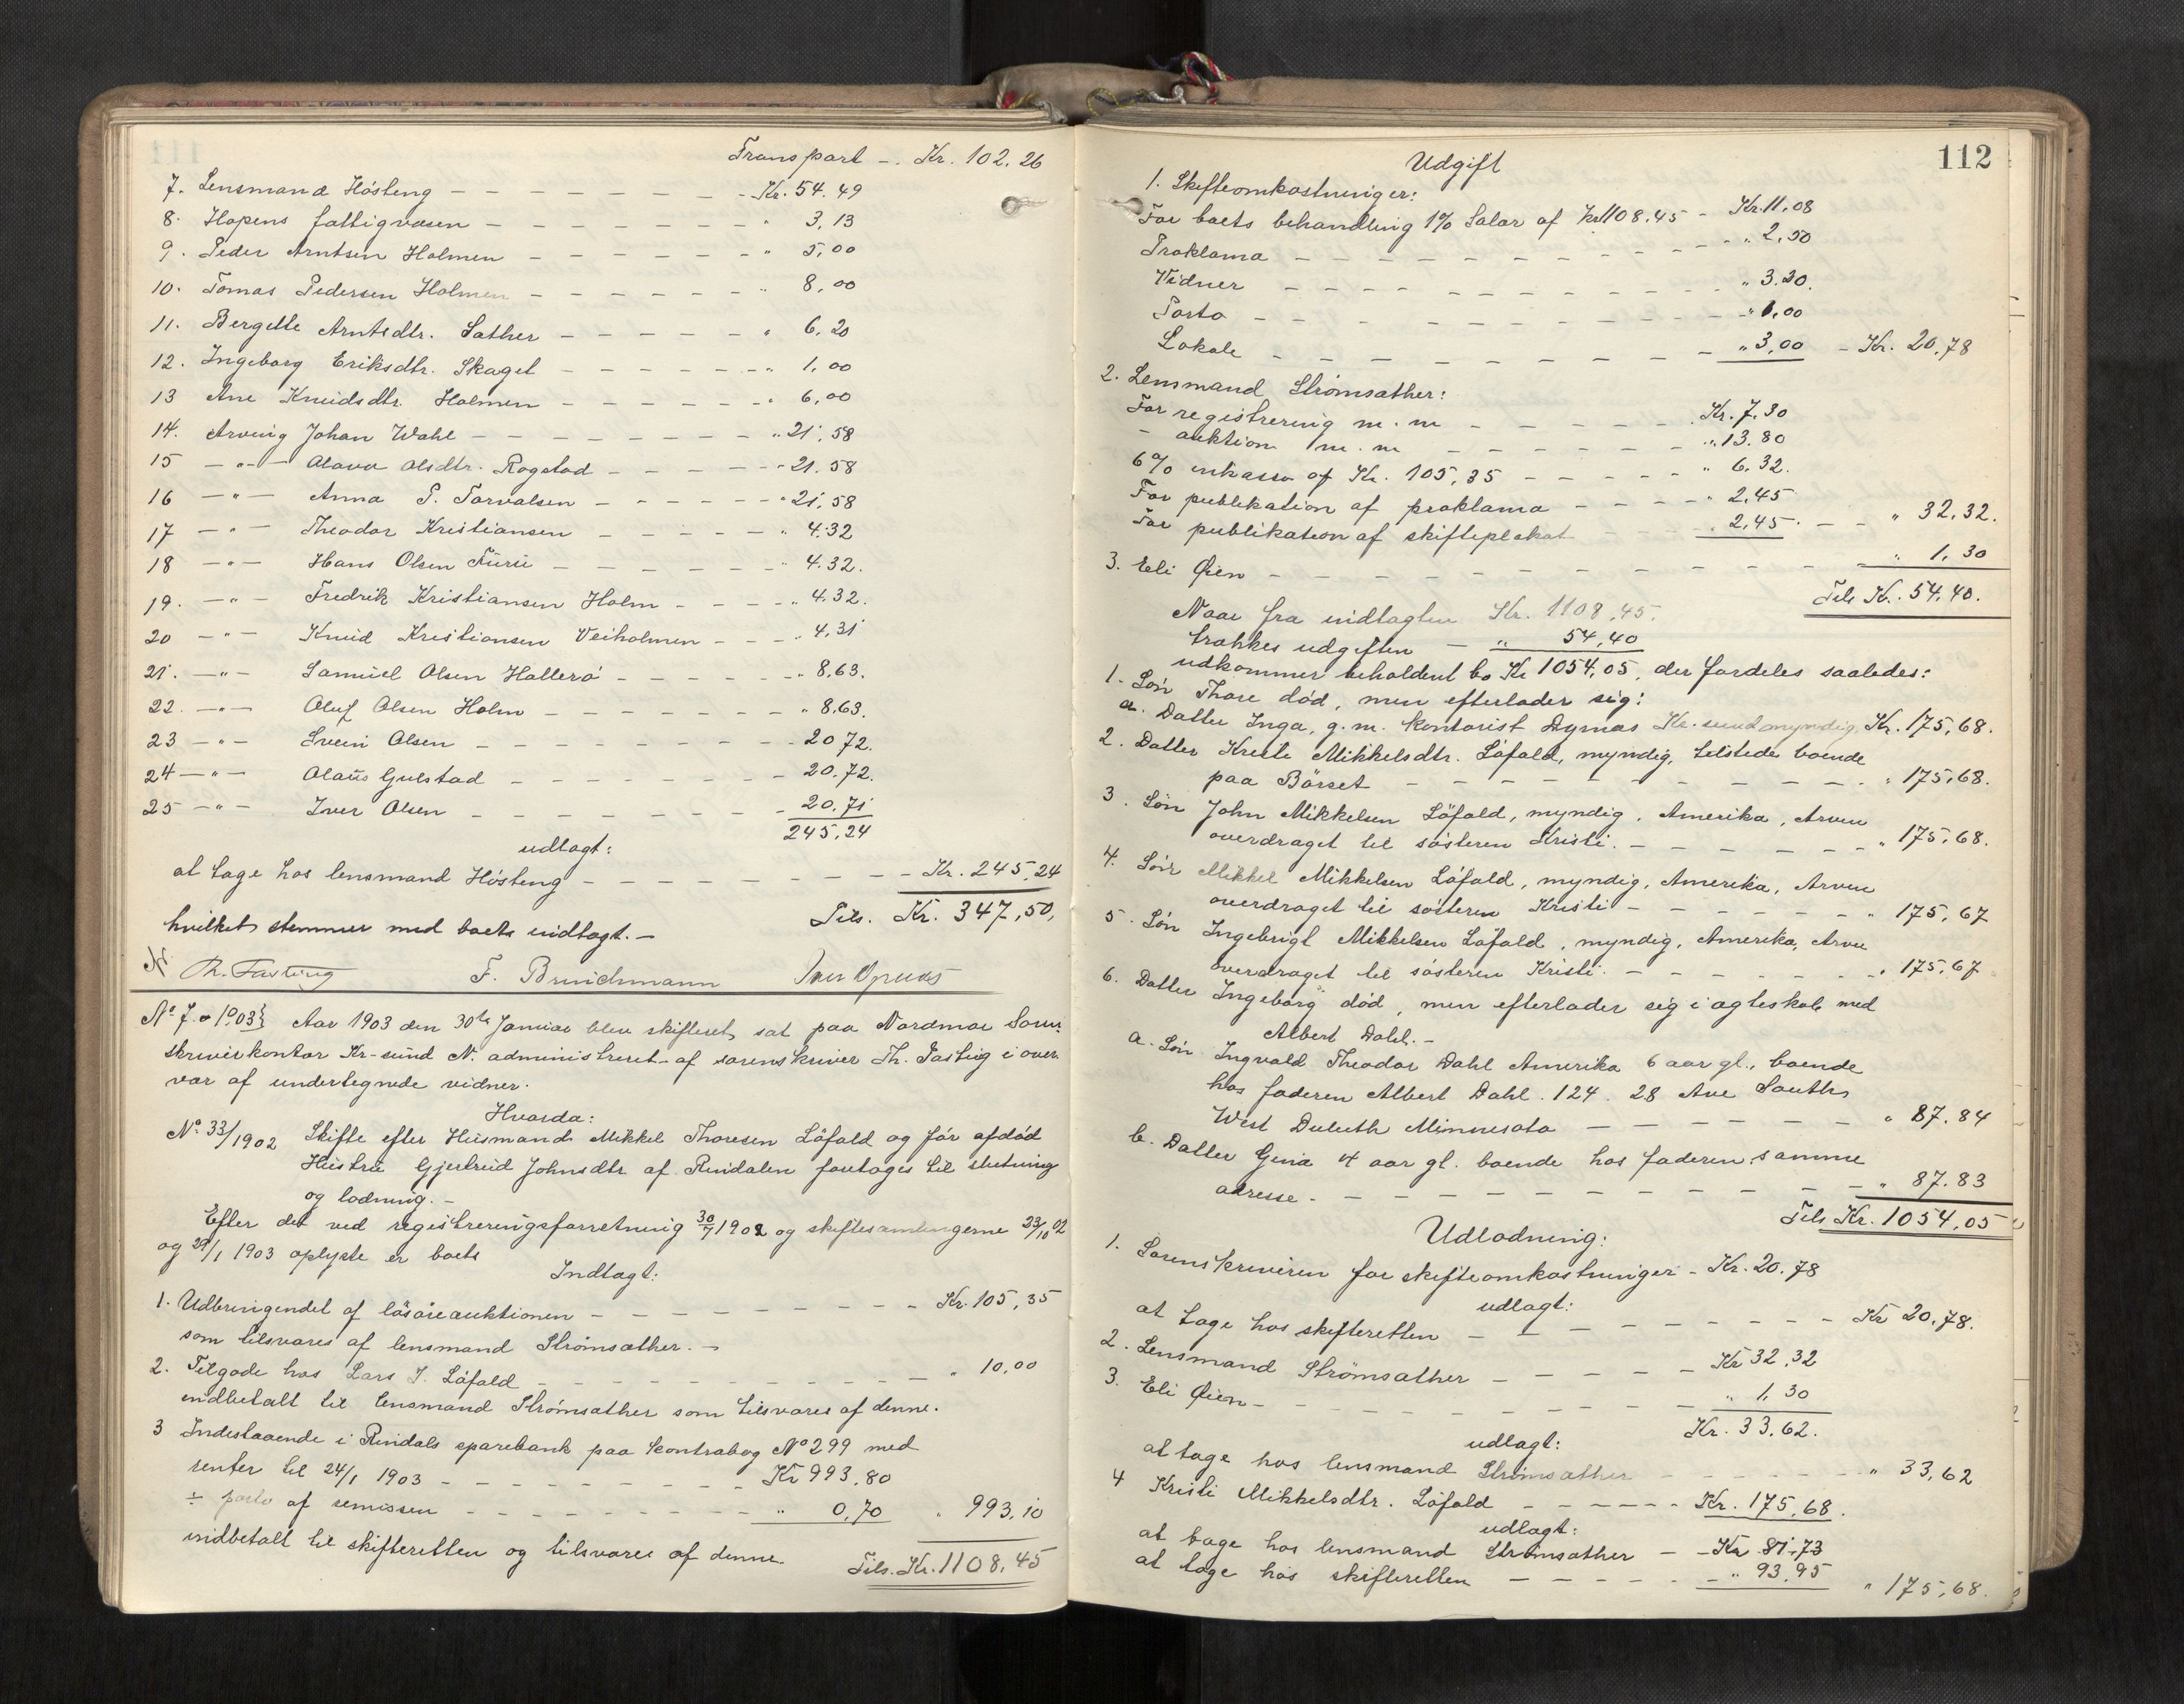 Transport -. Kr. 102.26
7. Lensmand Hösteng - - - - - - - Kr. 54.49
8. Hopens fattigvæsen - - - - - - " 3,13
9. Peder Arntsen Holmen - - - - - - " 5,00
10. Tomas Pedersen Holmen - - - - - - " 8,00
11. Bergitte Arntsdtr. Sæther - - - - - " 6.20
12. Ingeborg Eriksdtr. Skaget - - - - - - " 1,00
13 Ane Knudsdtr. Holmen - - - - - - " 6,00
14. Arving Johan Wahl - - - - - - - - " 21,58
15 -"- Olava Olsdtr. Rogstad - - - - - " 21.58
16 -"- Anna P. Torvalsen - - - - - " 21,58
17 -"- Theodor Kristiansen - - - - - " 4.32
18 -"- Hans Olsen Furu - - - - - - " 4.32.
19. -"- Fredrik Kristiansen Holm - - - - " 4.32.
20 -"- Knud Kristiansen Veiholmen - - - " 4,31
21. -"- Samuel Olsen Hallerö - - - - - " 8,63.
22. -"- Oluf Olsen Holm - - - - - - - " 8,63.
23 -"- Svein Olsen - - - - - - - - - 20 72.
24 -"- Olaus Gulstad - - - - - - - - 20.72.
25 -"- Iver Olsen - - - - - - - - - 20.71
245,24
udlagt:
at tage hos lensmand Hösteng - - - - - - - - - Kr. 245,24
Tils. Kr. 347,50,
hvilket stemmer med boets indtægt. -
Th. Fasting F. Brinchmann Iver Opnæs
No 7. 1903} Aar 1903 den 30te Januar blev skifteret sat paa Nordmør Soren
skriverkontor Kr-sund N. administreret af sorenskriver Th. Fasting i over
vær af undertegnede vidner.
Hvorda:
No 33/1902 Skifte efter Husmand Mikkel Thoresen Löfald og før afdöd
Hustru Gjertrud Johnsdtr. af Rindalen foretoges til slutning
og lodning. -
Efter det ved registreringsforretning 30/7 1902 og skiftesamlingerne 23/10 02
og 29/1 1903 oplyste er boets
Indtægt:
1. Udbringendet af lösöreauktionen - - - - - - - - - Kr. 105,35
som tilsvares af lensmand Strömsæther. -
2. Tilgode hos Lars J. Löfald - - - - - - - - - - " 10,00
indbetalt til lensmand Strömsæther som tilsvares af denne.
3 Indestaaende i Rindals sparebank paa kontrabog No 299 med
renter til 24/1 1903 - - - - - - - - Kr 993,80
÷ porto af remissen - - - - - - - - " 0,70 " 993,10
indbetalt til skifteretten og tilsvares af denne. Tils. Kr. 1108,45
112
Udgift
1. Skifteomkostninger:
For boets behandling 1% Salær af Kr 1108.45 - Kr. 11,08
Proklama - - - - - - - - - - - - " 2,50
Vidner - - - - - - - - - - - - " 3.20.
Porto - - - - - - - - - - - - " 1,00
Lokale - - - - - - - - - - - " 3,00 - Kr. 20,78
2. Lensmand Strömsæther:
For registrering m. m - - - - - Kr. 7.30
- auktion m. m - - - - - - " 13.80
6% inkasso af Kr. 105,35 - - - - - " 6,32.
For publikation af proklama - - - - " 2,45
For publikation af skifteplakat - - - " 2,45. - - " 32,32.
3. Eli Øien - - - - - - - - - - - - - - " 1,30
Tils Kr. 54,40.
Naar fra indtægten Kr. 1108,45.
trækkes udgiften - " 54,40
udkommer beholdent bo Kr 1054,05, der fordeles saaledes:
1. Sön Thore död, men efterlader sig:
a. Datter Inga, g. m. kontorist Dyrnæs Kr.-sund myndig, Kr. 175,68.
2. Datter Kristi Mikkelsdtr. Löfald, myndig, tilstede boende
paa Börset - - - - - - - - - - - " 175,68.
3. Sön John Mikkelsen Löfald, myndig, Amerika, Arven
overdraget til söstren Kristi. - - - - - - - " 175,68.
4. Sön Mikkel Mikkelsen Löfald, myndig, Amerika, Arven
overdraget til söstren Kristi - - - - - - - " 175,67
5. Sön Ingebrigt Mikkelsen Löfald, myndig, Amerika, Arven
overdraget til söstren Kristi. - - - - - - - " 175,67
6. Datter Ingeborg död, men efterlader sig i ægteskab med
Albert Dahl. -
a. Sön Ingvald Theodor Dahl Amerika 6 aar gl., boende
hos faderen Albert Dahl. 124. 28 Ave South
West Duluth Minnesota - - - - - - - " 87.84
b. Datter Gina 4 aar gl. boende hos faderen samme
adresse. - - - - - - - - - - - - - " 87.83
Tils Kr. 1054,05
Udlodning:
1. Sorenskriveren for skifteomkostninger - Kr. 20.78
udlagt:
at tage hos skifteretten - - - - - - - - - Kr 20,78.
2. Lensmand Strömsæther - - - - - Kr 32,32
3. Eli Øien - - - - - - - - - - " 1,30
Kr. 33,62.
udlagt:
at tage hos lensmand Strömsæther - - - - - - " 33,62
4 Kristi Mikkelsdtr. Löfald - - - - - Kr. 175,68.
udlagt:
at tage hos lensmand Strömsæther - - Kr 81,73
at tage hos skifteretten - - - - - " 93,95 " 175,68.